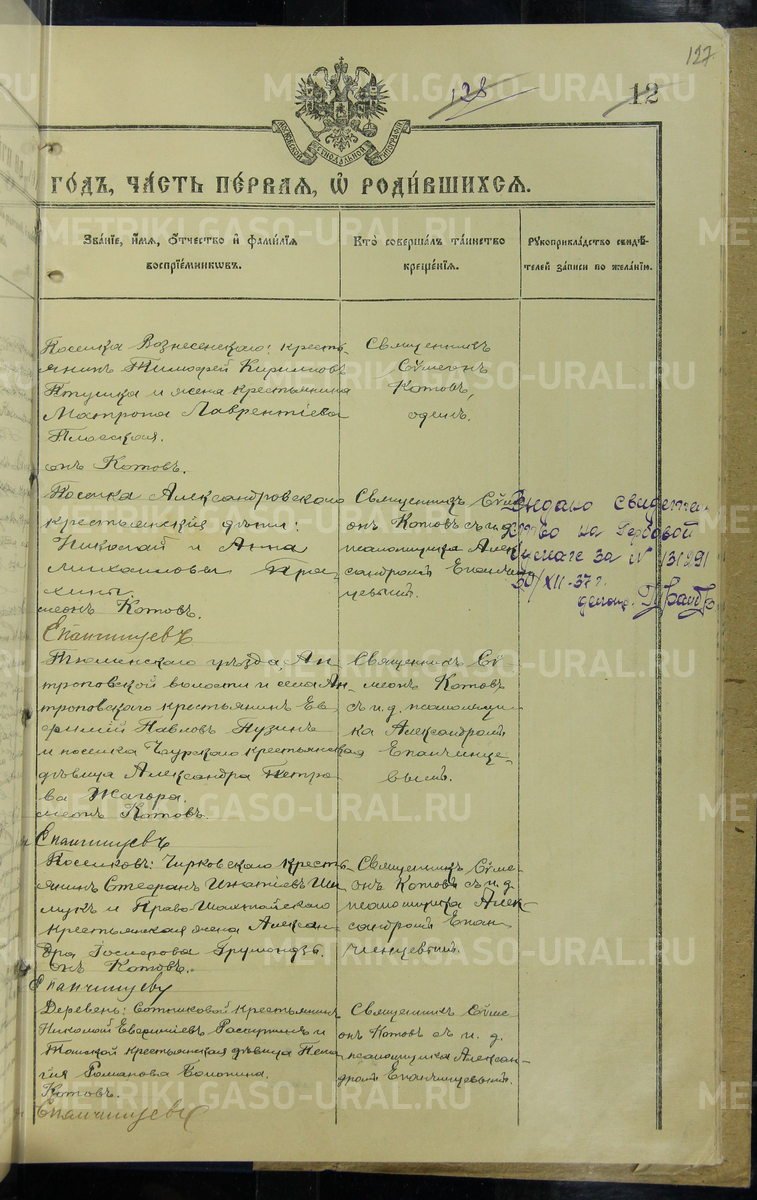 127
128
12
МОСКОВСКОЙ СѴНОДАЛЬНОЙ ТИПОГРАФІИ
ГОДЪ, ЧАСТЬ ПЕРВАЯ, Ѡ РОДИВШИХСЯ.
Званіе, имя, отчество и фамилія
воспріемниковъ.
Кто совершалъ таинство
крещенія.
Рукоприкладство свидѣ-
телей записи по желанію.
Поселка Вознесенскаго: кресть-
янинъ Тимофей Кирилловъ
Птушка и жена крестьянина
Матрона Лаврентіева
онъ Котовъ.
Священникъ
Сѵмеонъ
Котовъ,
одинъ.
Поселка Александровскаго
крестьянскія дѣти:
Николай и Анна
Михаиловы
меонъ Котовъ.
Епанчинцевъ
Священникъ Сѵме-
онъ Котовъ съ и. д.
псаломщика Алек-
сандромъ Епанчин-
цевымъ.
Выдано свидетель-
ство на гербовой
бумаге за № 131891
30/XII-37 г.
Тюменскаго уѣзда, Ан-
троповской волости и села Ан-
троповскаго крестьянинъ Ев-
фимій Павловъ Пузинъ
и поселка Чурскаго крестьянская
дѣвица Александра Петро-
ва Жагора.
меонъ Котовъ.
Епанчинцевъ
Священникъ Сѵ-
меонъ Котовъ
съ и. д. псаломщи-
ка Александромъ
Епанчинце-
вымъ.
Поселковъ: Чирковскаго кресть-
янинъ Стефанъ Игнатіевъ Ши-
мукъ и Право-Шахтайскаго
крестьянская жена Алексан-
дра
онъ Котовъ.
Епанчинцевъ
Священникъ Сѵме-
онъ Котовъ съ и. д.
псаломщика Алек-
сандромъ Епан-
чинцевымъ.
Деревень: Сотниковой крестьянинъ
Николай Евфиміевъ и
крестьянская дѣвица Пела-
гія Романова
Котовъ.
Епанчинцевъ
Священникъ Сѵме-
онъ Котовъ съ и. д.
псаломщика Алексан-
дромъ Епанчинцевымъ.
METRIKI.GASO-URAL.RU